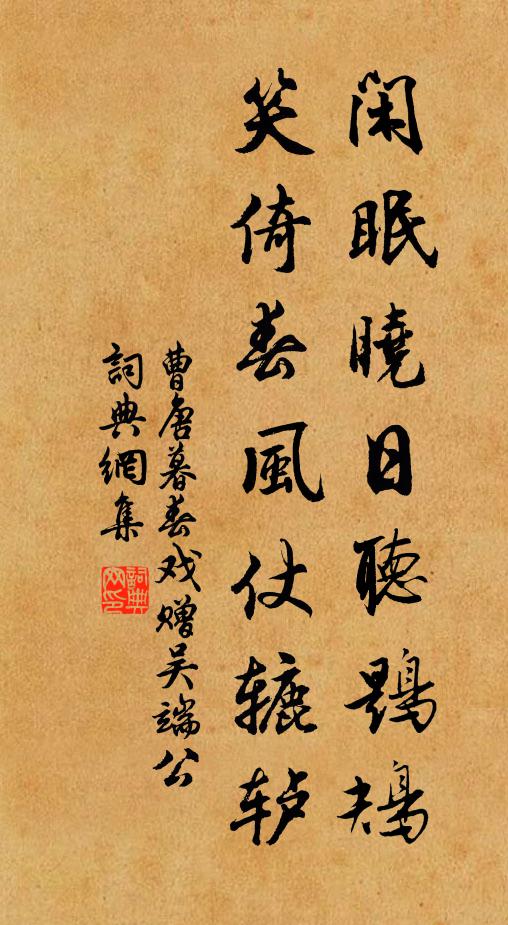 閑眠曉日聽鶗鴂
笑倚春風仗辘轳
曹唐暮春戏赠吴端公
詞典網集
詞典网印